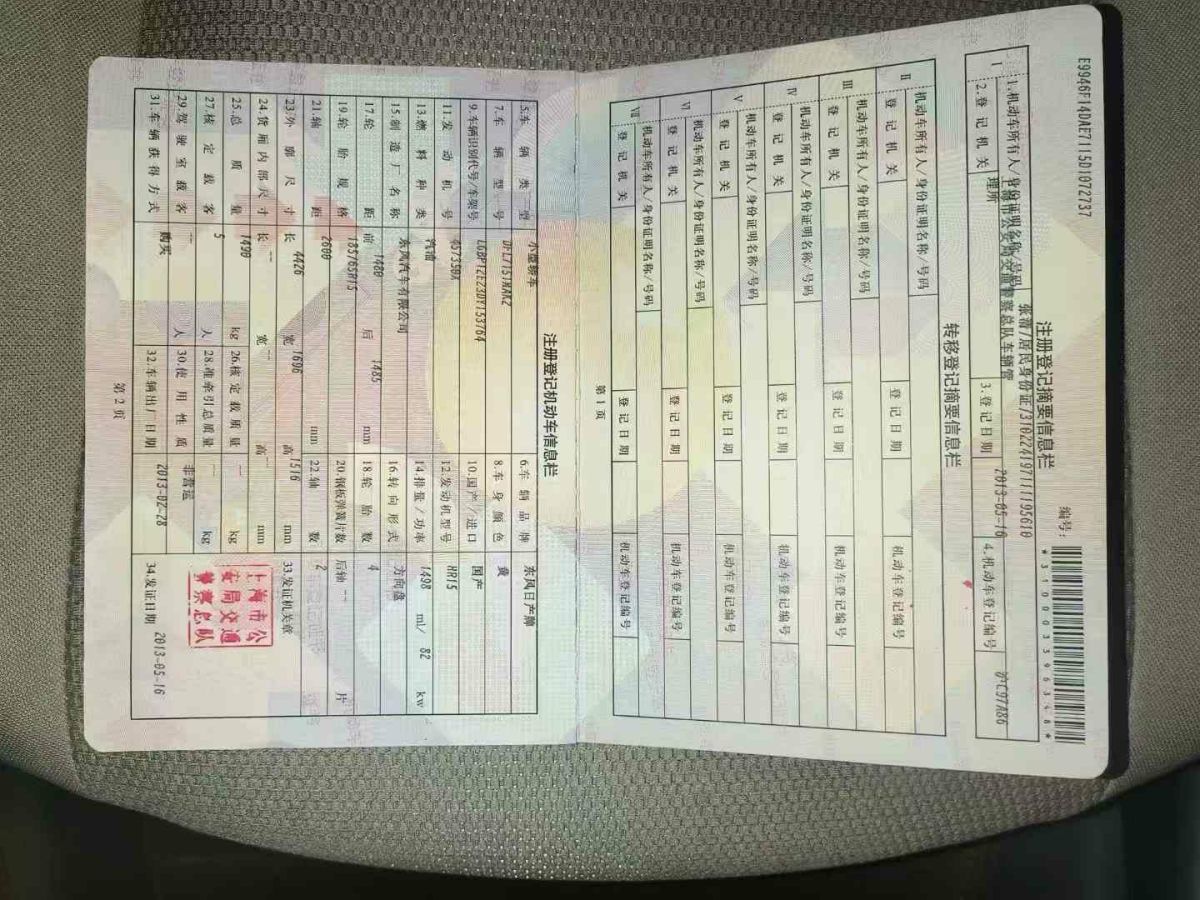 E9946F14DAE7115D1072737
注册登记摘要信息栏
编号:
*310003396348*
Ⅰ
1.机动车所有人/身份证明名称/号码
张浩/居民身份证/310224197111195610
2.登记机关
上海市公安局交通警察总队车辆管理所
3.登记日期
2013-05-16
4.机动车登记编号
沪C97A86
转移登记摘要信息栏
Ⅱ
机动车所有人/身份证明名称/号码
登记机关
登记日期
机动车登记编号
Ⅲ
机动车所有人/身份证明名称/号码
登记机关
登记日期
机动车登记编号
Ⅳ
机动车所有人/身份证明名称/号码
登记机关
登记日期
机动车登记编号
Ⅴ
机动车所有人/身份证明名称/号码
登记机关
登记日期
机动车登记编号
Ⅵ
机动车所有人/身份证明名称/号码
登记机关
登记日期
机动车登记编号
Ⅶ
机动车所有人/身份证明名称/号码
登记机关
登记日期
机动车登记编号
第 1 页
注册登记机动车信息栏
5.车辆类型 小型轿车 6.车辆品牌 东风日产牌
7.车辆型号 8.车身颜色 黄
9.车辆识别代号/车架号 LGBP12E23DY153764 10.国产/进口 国产
11.发动机号 457350X 12.发动机型号 HR15
13.燃料种类 汽油 14.排量/功率 1498 ml/ 82 kw
15.制造厂名称 东风汽车有限公司 16.转向形式 方向盘
17.轮距 前 1480 后 1485 mm 18.轮胎数 4
19.轮胎规格 185/65R15 20.钢板弹簧片数 后轴 -- 片
21.轴距 2600 mm 22.轴数 2
23.外廓尺寸 长 4426 宽 1696 高 1516 mm 33.发证机关章
24.货厢内部尺寸 长 -- 宽 -- 高 -- mm
25.总质量 1490 kg 26.核定载质量 -- kg
27.核定载客 5 人 28.准牵引总质量 -- kg
29.驾驶室载客 -- 人 30.使用性质 非营运
31.车辆获得方式 购买 32.车辆出厂日期 2013-02-28 34.发证日期 2013-05-16
上海市公
安局交通
警察总队
第 2 页